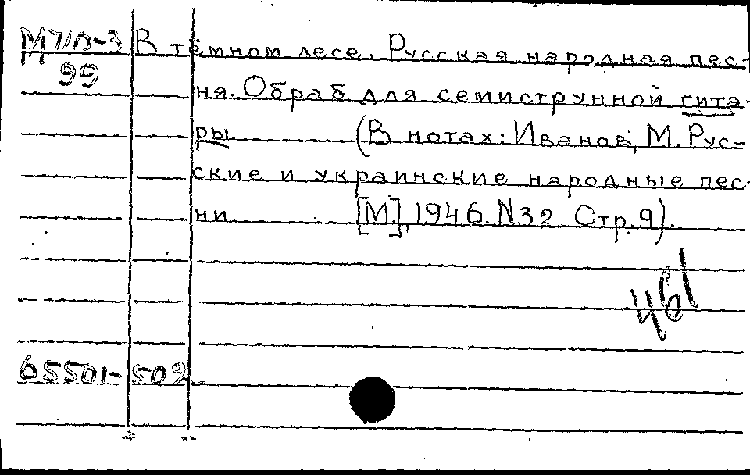 М 710-3 В тёмном лесе. Русская народная пес-
99 ня. Обраб для семиструнной гита-
ры (В нотах: Иванов, М. Рус-
ские и украинские народные пес-
ни [М], 1946. N32 Стр. 9).
461
65501-502